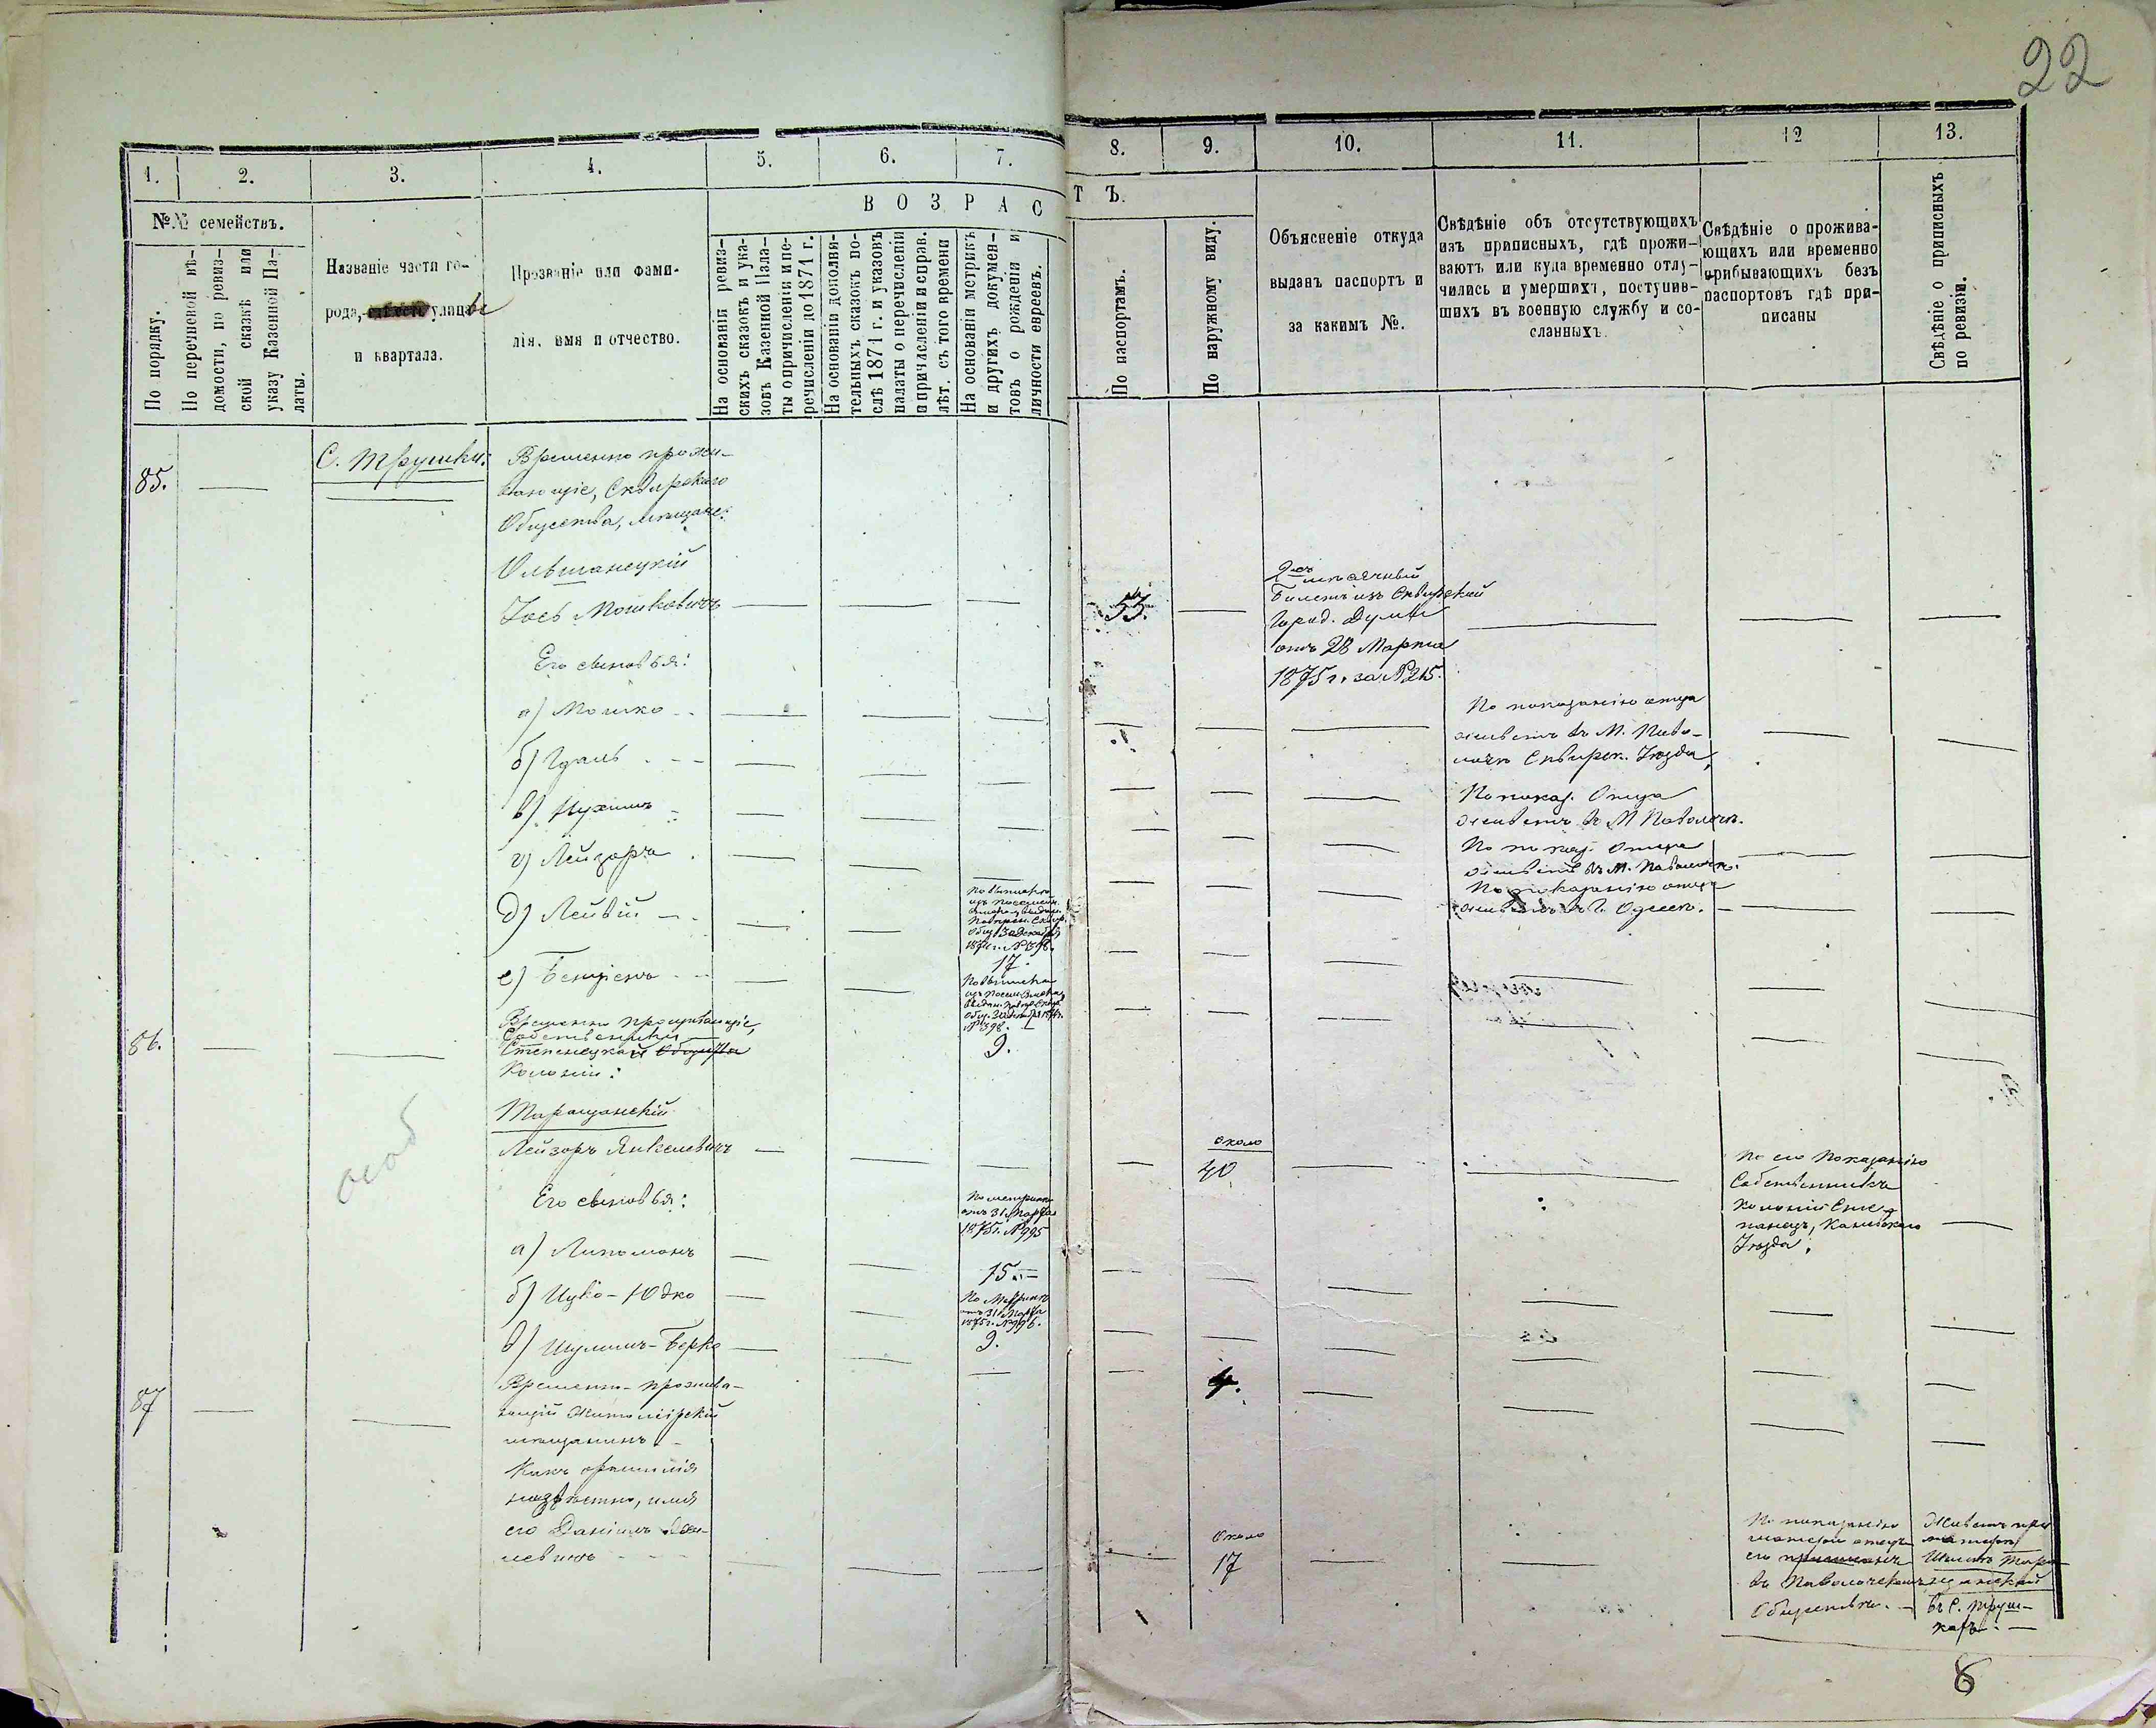 22
1.
2.
3.
4.
5.
6.
7.
8.
9.
10.
11.
12
13.
№№ семействъ.
По порядку.
По перечневой вѣ-
домости, по ревиз-
ской сказкѣ или
указу Казенной Па-
латы.
Названіе части го-
рода, улицы
и квартала.
Прозваніе или фами-
лія, имя и отчество.
ВОЗРАС
ТЪ.
На основаніи ревиз-
скихъ сказокъ и ука-
зовъ Казенной Пала-
ты о причисленіи и пе-
речисленіи до 1871 г.
На основаніи дополни-
тельныхъ сказокъ по-
слѣ 1871 г. и указовъ
палаты о перечисленіи
и причисленіи и справ.
лѣт. съ того времени
На основаніи метрикъ
и другихъ докумен-
товъ о рожденіи и
личности евреевъ.
По паспортамъ.
По наружному виду.
Объясненіе откуда
выданъ паспортъ и
за какимъ №.
Свѣдѣніе объ отсутствующихъ
изъ приписныхъ, гдѣ прожи-
ваютъ или куда временно отлу-
чились и умершихъ, поступив-
шихъ въ военную службу и со-
сланныхъ.
Свѣдѣніе о прожива-
ющихъ или временно
прибывающихъ безъ
паспортовъ гдѣ при-
писаны
Свѣдѣніе о приписныхъ
по ревизіи.
85.
С. Трушки:
Временно прожи-
вающіе, Сквирскаго
Общества, мѣщане:
Ольшанецкій
Іось Мошковичъ
53.
2хъ мѣсячный
Билетъ изъ Сквирской
Город. Думы
отъ 28 Марта
1875 г. за №215.
Его сыновья:
а) Мошко
По показанію отца
живетъ въ М. Паво-
лочѣ Сквирск. Уѣзда,
б) Идаль
По показ. Отца
живетъ въ М Паволочѣ.
в) Нухимъ
По показ. Отца
живетъ въ М. Паволочѣ.
г) Лейзоръ
По показанію отца
живетъ въ Г. Одессѣ.
д) Лейвій
По выписке
изъ посемейн.
Общ. 30 Декабря
1874 г. №398.
17.
е) Бенціонъ
По выписке
изъ посем.
№398.
9.
86.
Временно проживающіе,
Собственники
Степенецкой Общества
Колоніи:
особ
Таращанскій
Лейзоръ Янкелевичъ
около
40
По его показанію
Собственникъ
колоніи Сте-
панецъ, Каневскаго
Уѣзда.
Его сыновья:
а) Липоманъ
По метрикѣ
отъ 31 Марта
1875 г. №995
15.
б) Ицко-Юдко
По Метрикѣ
отъ 31 Марта
1875 г. №996.
9.
в) Шулимъ-Берко
4.
87
Временно-прожива-
ющій Житомірскій
мѣщанинъ.
Какъ фамилія
неизвѣстно, имя
его Данiилъ
Около
17
По показанію
матери отецъ
его приписанъ
въ Паволочскомъ
Обществѣ.
Живетъ при
матери
Таращанской
въ С. Труш-
кахъ.
8